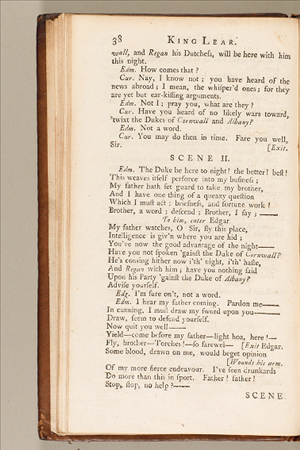 38 KING LEAR.
wall, and Regan his Dutchess, will be here with him
this night.
Edm. How comes that?
Cur. Nay, I know not; you have heard of the
news abroad; I mean, the whisper'd ones; for they
are yet but ear-kissing arguments.
Edm. Not I; pray you, what are they?
Cur. Have you heard of no likely wars toward,
'twixt the Dukes of Cornwall and Albany?
Edm. Not a word.
Cur. You may do then in time. Fare you well,
Sir. [Exit.
SCENE II.
Edm. The Duke be here to night! the better! best!
This weaves itself perforce into my business;
My father hath set guard to take my brother,
And I have one thing of a queazy question
Which I must act: briefness, and fortune work!
Brother, a word; descend; Brother, I say;——
To him, enter Edgar
My father watches, O Sir, fly this place,
Intelligence is giv'n where you are hid;
You've now the good advantage of the night——
Have you not spoken 'gainst the Duke of Cornwall?
He's coming hither now i'th' night, i'th' haste,
And Regan with him; have you nothing said
Upon his Party 'gainst the Duke of Albany?
Advise yourself.
Edg. I'm sure on't, not a word.
Edm. I hear my father coming. Pardon me——
In cunning, I must draw my sword upon you——
Draw, seem to defend yourself.
Now quit you well——
Yield—come before my father—light hoa, here!—
Fly, brother—Torches!—so farewel— [Exit Edgar.
Some blood, drawn on me, would beget opinion
[Wounds his arm.
Of my more fierce endeavour. I've seen drunkards
Do more than this in sport. Father! father!
Stop, stop, no help?——
SCENE